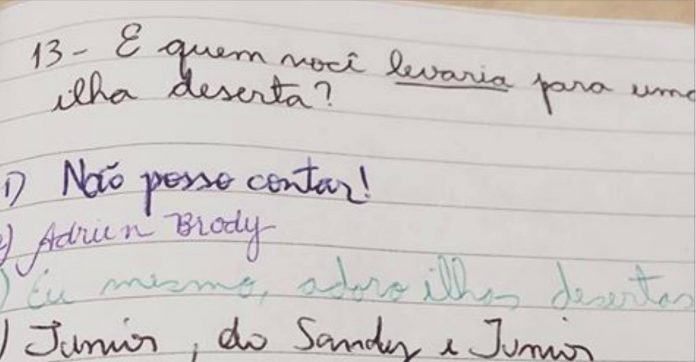 13- E quem você levaria para uma
ilha deserta?
1) Não posso contar!
) Adrien Brody
) Eu mesmo, adoro ilhas desertas
) Junior, do Sandy e Junior